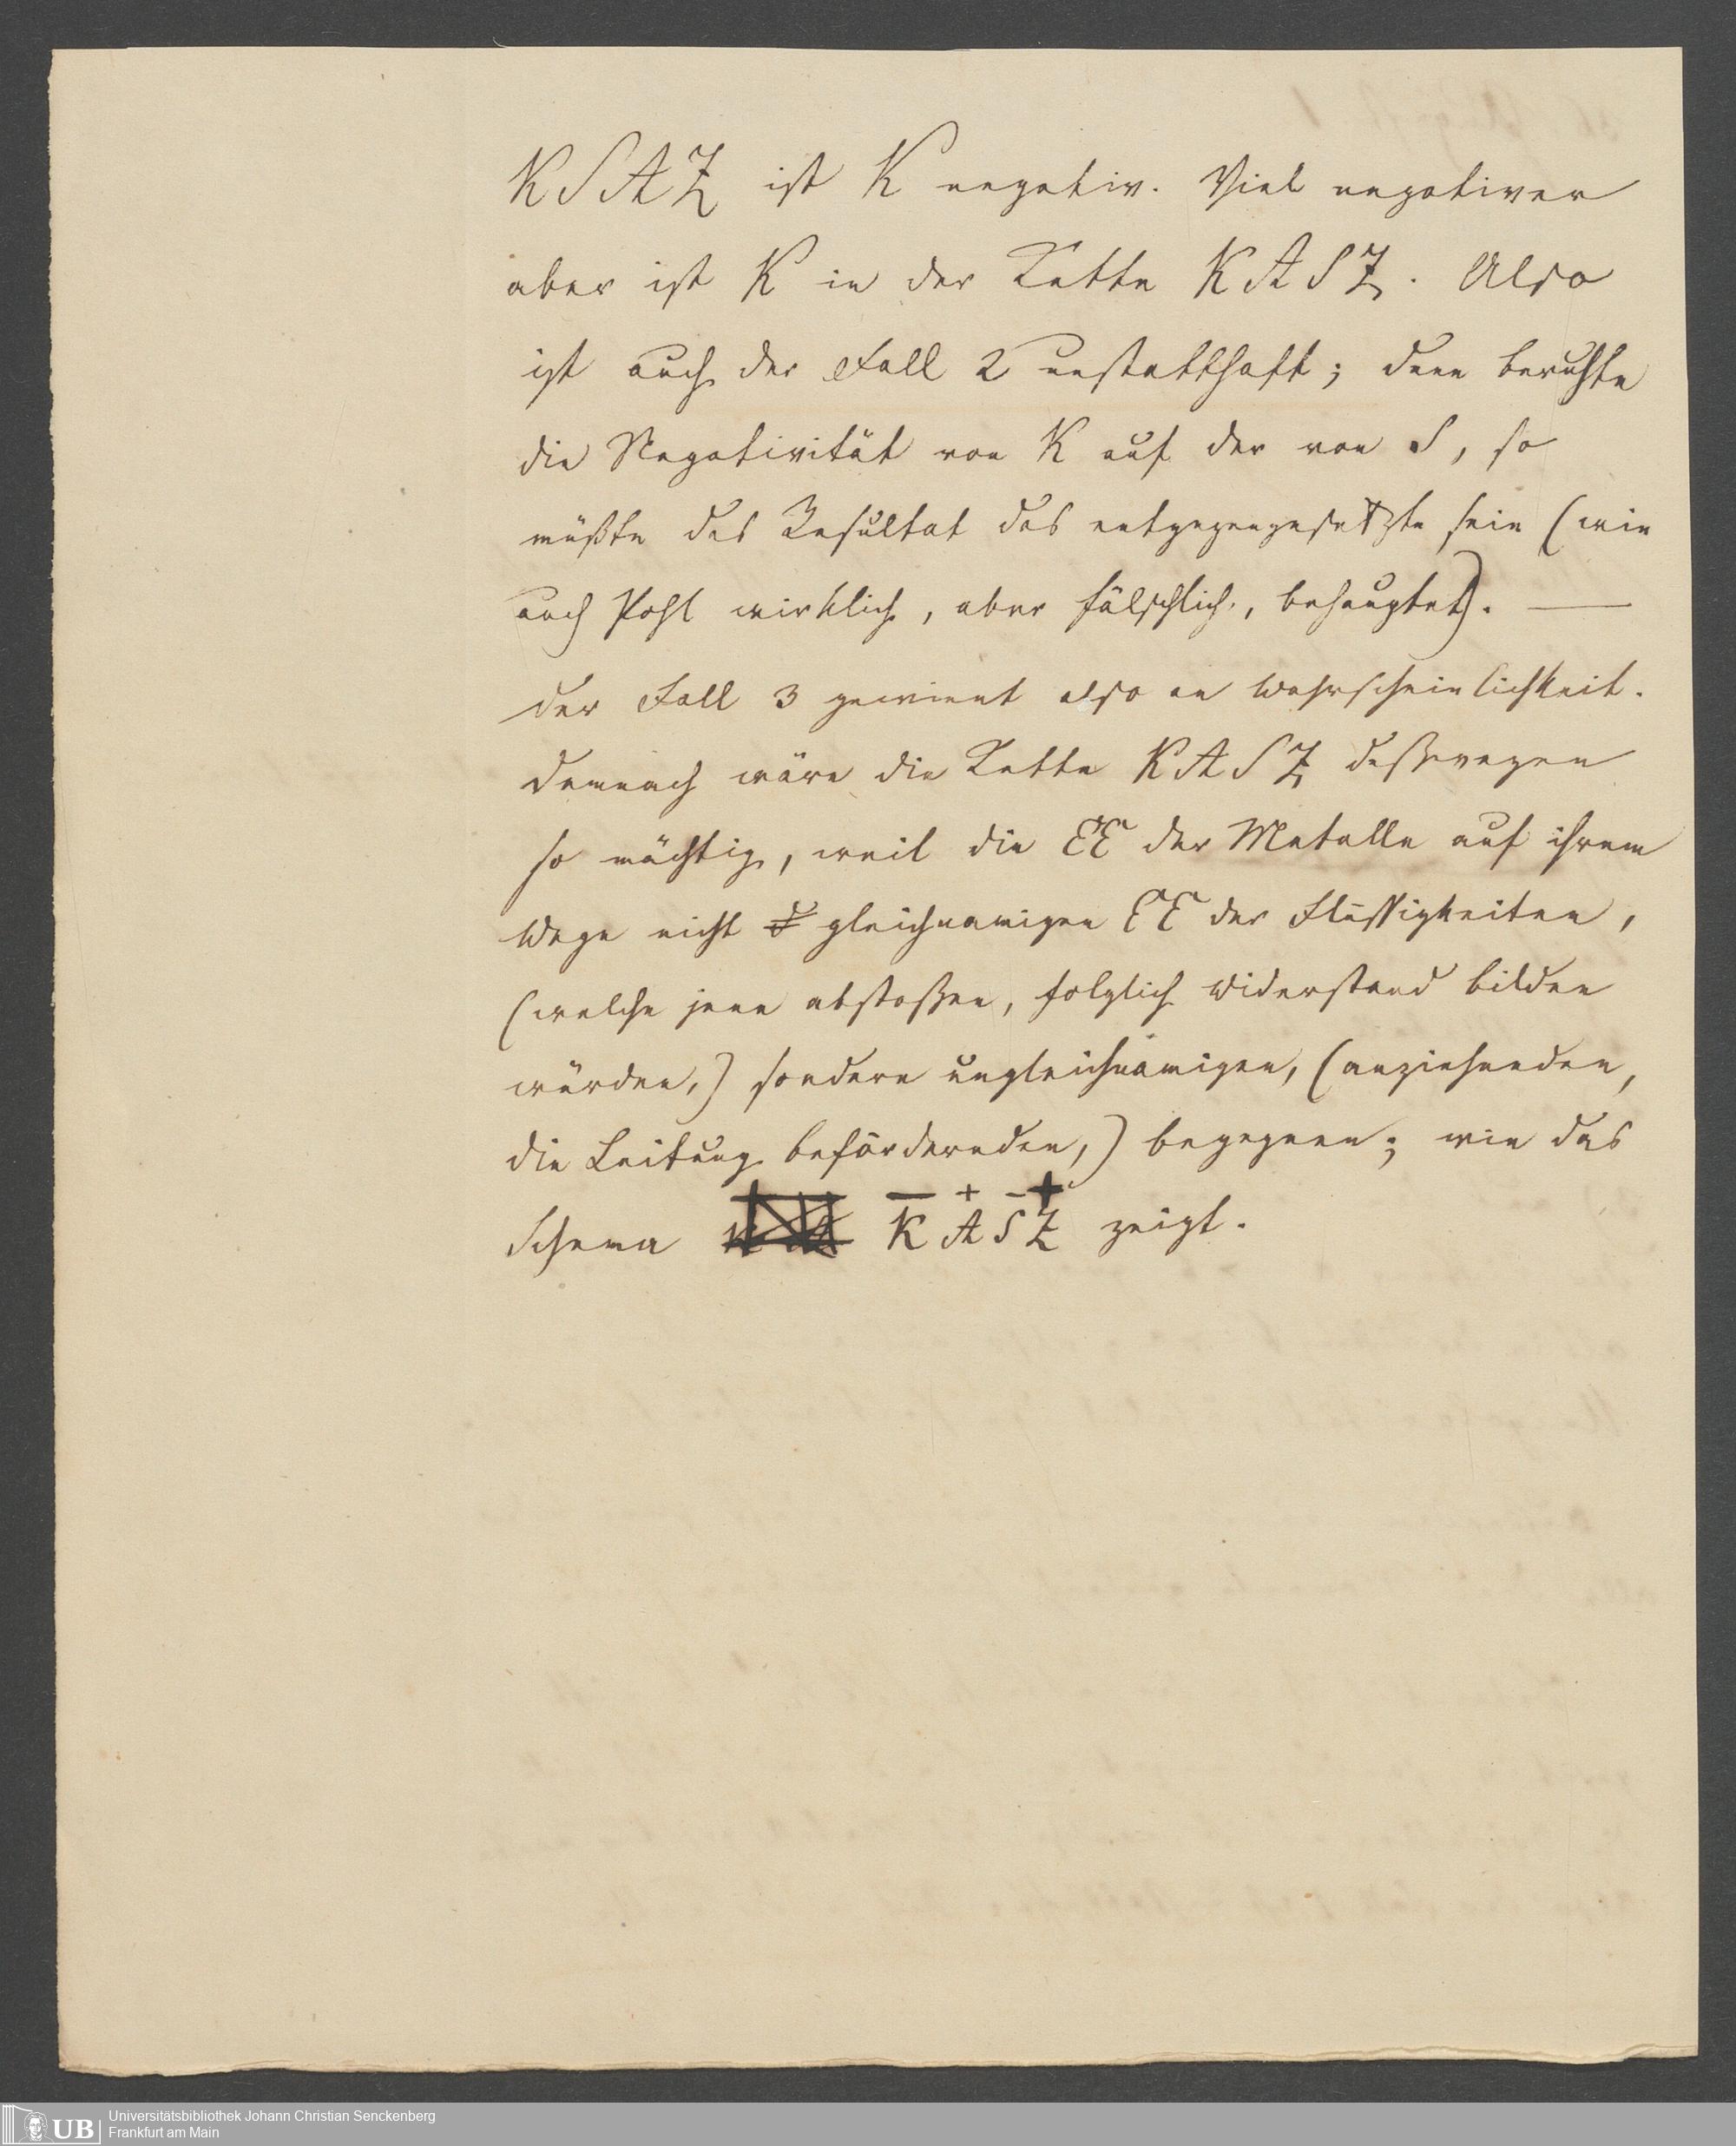 KSAZ ist K negativ. Viel negativer
aber ist K in der Kette KASZ. Also
ist auch der Fall 2 unstatthaft; denn beruhte
die Negativität von K auf der von S, so
müßte das Resultat das entgegengesetzte sein (wie
auch Pohl wirklich, aber fälschlich, behauptet). —
Der Fall 3 gewinnt also an Wahrscheinlichkeit.
Demnach wäre die Kette KASZ deßwegen
so mächtig, weil die EE der Metalle auf ihrem
Wege nicht gleichnamigen EE der Flüssigkeiten,
(welche jene abstoßen, folglich Widerstand bilden
würden,) sondern ungleichnamigen, (anziehenden,
die Leitung befördernden,) begegnen; wie das
— + – +
Schema K A S Z zeigt.
UB Universitätsbibliothek Johann Christian Senckenberg
Frankfurt am Main